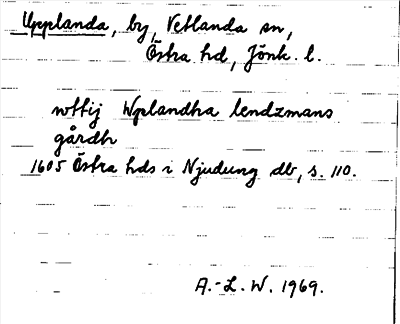 Upplanda, by, Vetlanda sn,
Östra hd, Jönk. l.
wttij Wplandha lendzmans
gårdh
1605 Östra hds i Njudung db, s. 110.
A.-L. W. 1969.